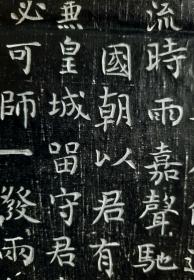 流時雨嘉聲馳
國朝以君有
兼皇城留守君
必可師一發雨